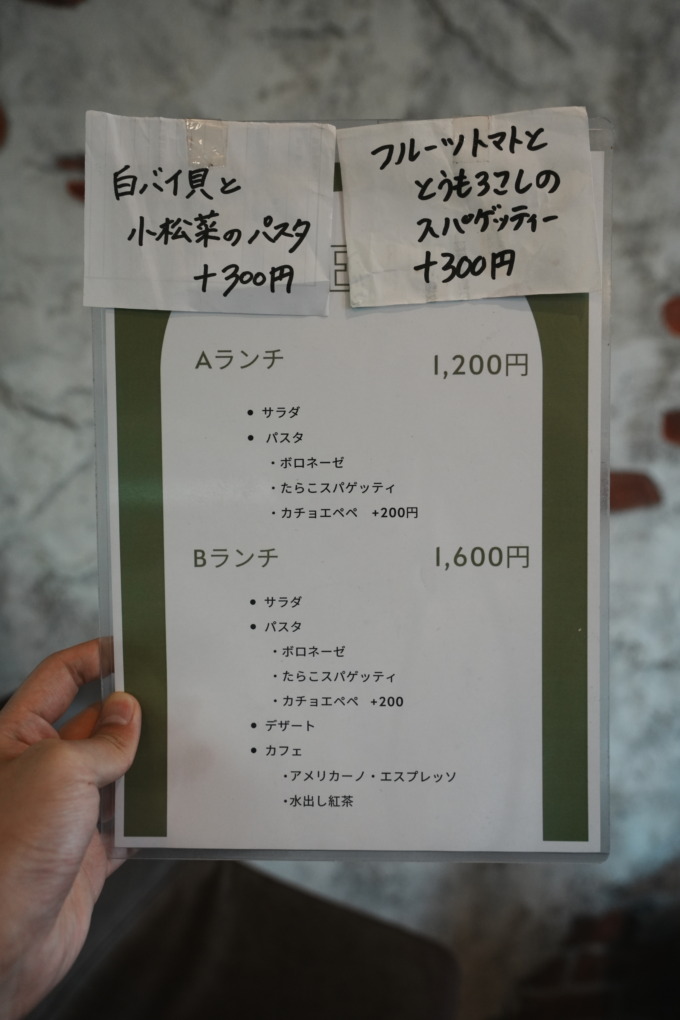 白バイ貝と
小松菜のパスタ
+300円
フルーツトマトと
とうもろこしの
スパゲッティー
+300円
Aランチ 1,200円
• サラダ
• パスタ
・ボロネーゼ
・たらこスパゲッティ
・カチョエペペ +200円
Bランチ 1,600円
• サラダ
• パスタ
・ボロネーゼ
・たらこスパゲッティ
・カチョエペペ +200
• デザート
• カフェ
・アメリカーノ・エスプレッソ
・水出し紅茶